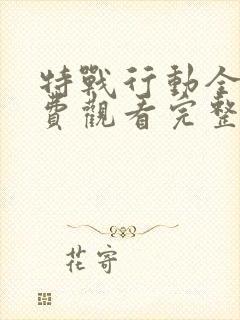 特戰行動全
費觀看完整
花寄